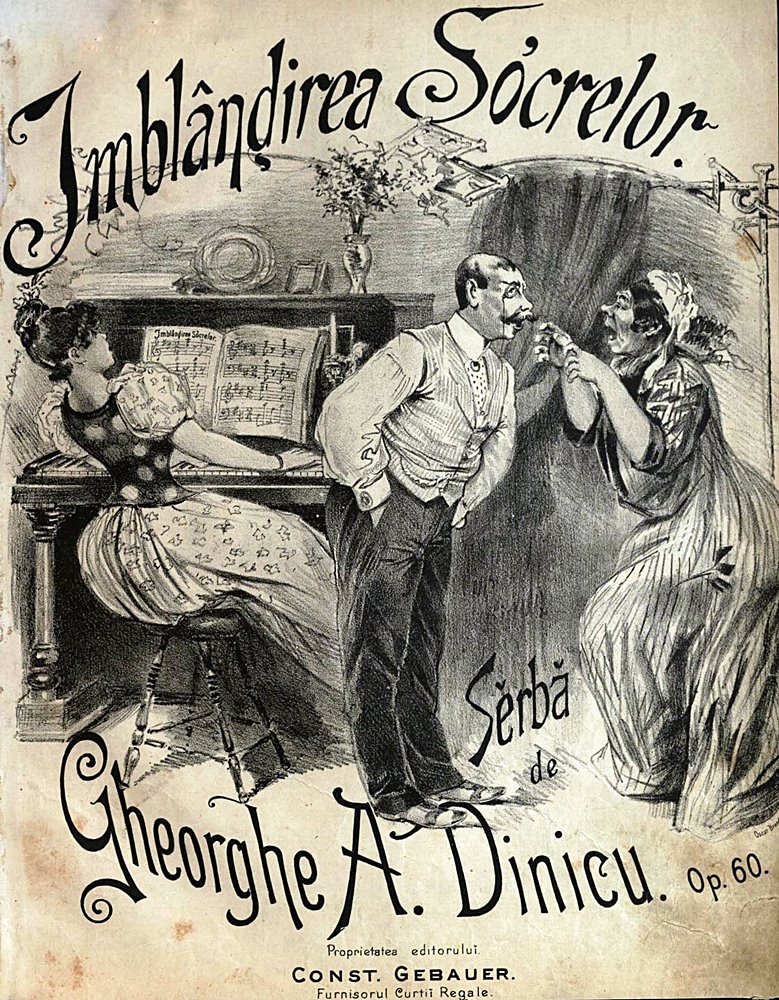 Imblânḑirea Sócrelor.
Imblândirea Sócrelor.
Sĕrbă
de
Gheorghe A. Dinicu. Op. 60.
Proprietatea editoruluĭ.
CONST. GEBAUER.
Furnisorul Curtiĭ Regale.